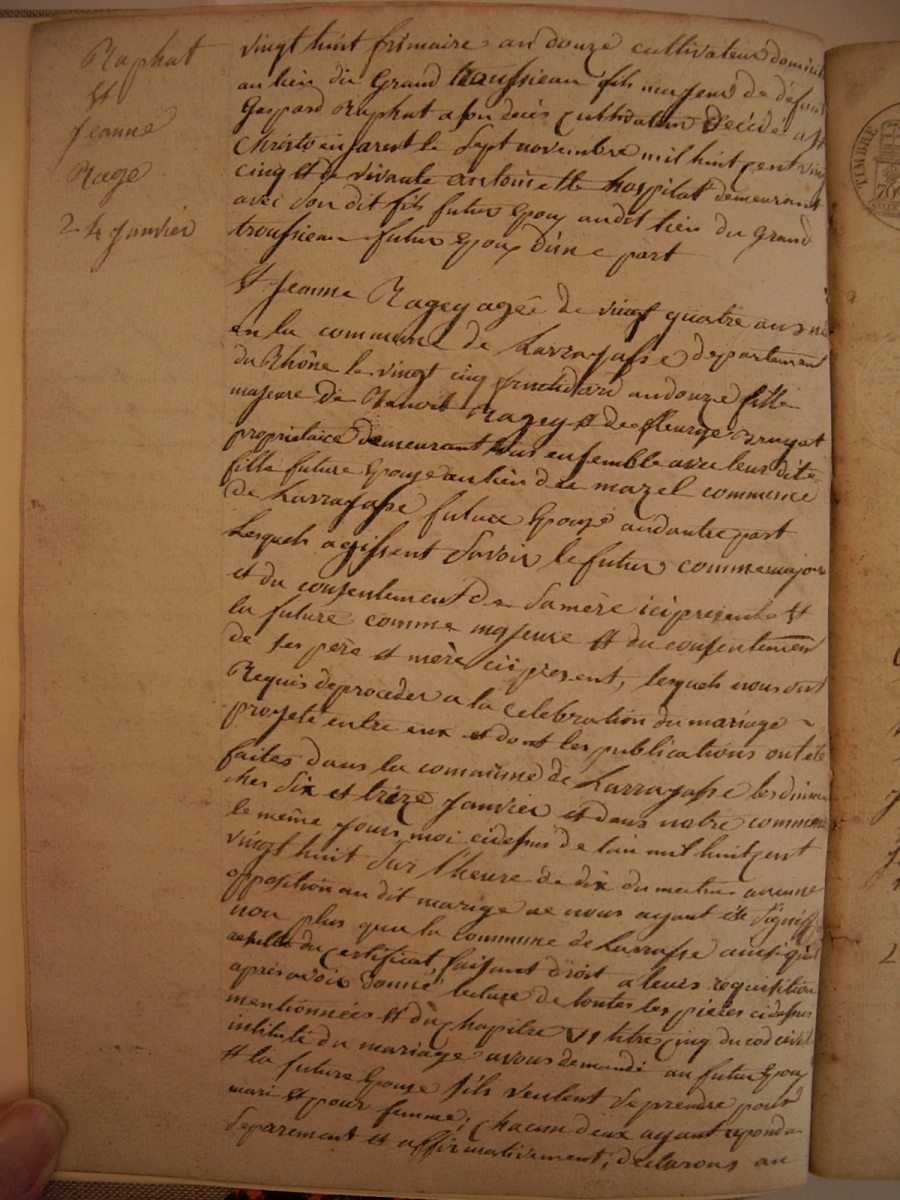 Raphat
et
Jeanne
Rage
24 Janvier
vingt huit frimaire an douze cultivateur domicil
au lieu du Grand troussieau fils majeur de défunt
Gaspard Raphat a son decès cultivateur décédé a St
Christo en jarest le Sept novembre mil huit cent vingt
cinq et de vivante antoinette hospital demeurant
avec son dit fils futur Epoux audit lieu du Grand
troussieau futur Epoux d'une part
et Jeanne Ragey agée de vingt quatre ans née
en la commune de Larrajasse departement
du Rhône le vingt cinq fructidard an douze fille
majeure de Benoit Ragey et de fleurye Bruyat
proprietaire demeurant tous ensemble avec leur dite
fille future Epouse au lieu de mazel commence
de Larrajasse future Epouse audautre part
Lesquels agissent Savoir le futur comme majeur
et du consentement de Samère ici presente et
la future comme majeure et du consentement
de ses père et mère ici present, lesquels nous ont
Requis deproceder a la celebration du mariage
projeté entre eux et dont les publications ont été
faites dans la commune de Larrajasse les diman
ches Six et treize Janvier et dans notre commune
le même jours moi cidessus de l'an mil huit cent
vingt huit Sur l'heure de dix du matin aucune
opposition au dit marige ne nous ayant été Signiff
non plus qua la commune de Larrasse ainsi quil
resulte du certificat, faisant droit a leurs requisition
après avoir donné lecture de toutes les pièces cidessus
mentionnées et du chapitre VI titre cinq du cod civil
intitulé du mariage avons demandé au futur Epoux
et la future Epouse s'ils veulent Seprendre pour
mari et pour femme; chacun deux ayant repondu
Séparement et affirmativement; declarons au
TIMBRE